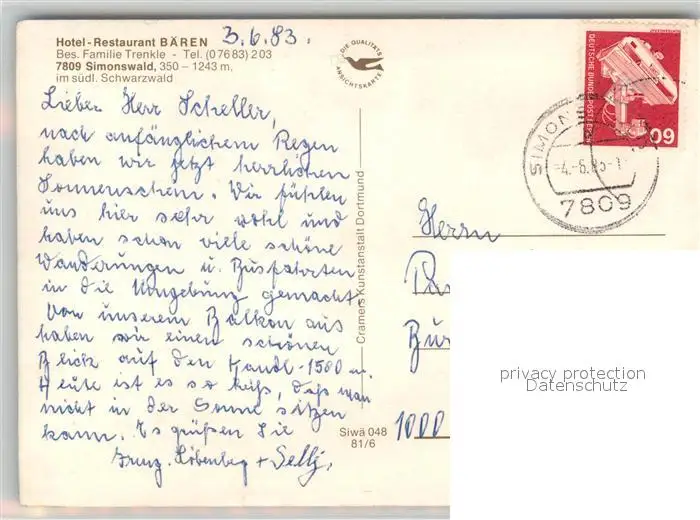 Hotel-Restaurant BÄREN
Bes. Familie Trenkle - Tel. (07683) 203
7809 Simonswald, 350 – 1243 m,
im südl. Schwarzwald
3.6.83.
DIE QUALITÄTS
ANSICHTSKARTE
Lieber Herr Scheller,
nach anfänglichem Regen
haben wir jetzt herrlichen
Sonnenschein. Wir fühlen
uns hier sehr wohl und
haben schon viele schöne
Wanderungen u. Busfahrten
in die Umgebung gemacht.
Von unserem Balkon aus
haben wir einen schönen
Blick auf den Kandl - 1500 m.
Heute ist es so heiß, daß man
nicht in der Sonne sitzen
kann. Es grüßen Sie
Cramers Kunstanstalt Dortmund
Siwä 048
81/6
DEUTSCHE BUNDESPOST BERLIN
60
SIMONSWALD
7809
Herrn
1000
privacy protection
Datenschutz